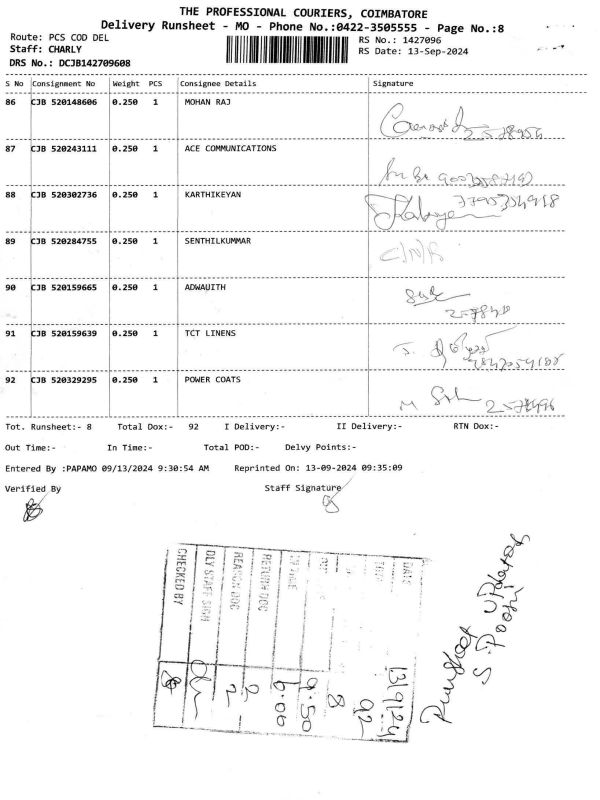 THE PROFESSIONAL COURIERS, COIMBATORE
Delivery Runsheet - MO - Phone No.:0422-3505555 - Page No.:8
Route: PCS COD DEL
RS No.: 1427096
Staff: CHARLY
RS Date: 13-Sep-2024
DRS No.: DCJB142709608
S No Consignment No Weight PCS Consignee Details Signature
86 CJB 520148606 0.250 1 MOHAN RAJ
87 CJB 520243111 0.250 1 ACE COMMUNICATIONS
88 CJB 520302736 0.250 1 KARTHIKEYAN
89 CJB 520284755 0.250 1 SENTHILKUMMAR
C/N/R
90 CJB 520159665 0.250 1 ADWAUITH
91 CJB 520159639 0.250 1 TCT LINENS
92 CJB 520329295 0.250 1 POWER COATS
Tot. Runsheet:- 8 Total Dox:- 92 I Delivery:- II Delivery:- RTN Dox:-
Out Time:- In Time:- Total POD:- Delvy Points:-
Entered By :PAPAMO 09/13/2024 9:30:54 AM Reprinted On: 13-09-2024 09:35:09
Verified By Staff Signature
DATE 13/9/24
92
8
9.50
6.00
RETURN DOC 2
REASON DOC 2
DLY STAFF SIGN
CHECKED BY
Runsheet updated
S Poorni